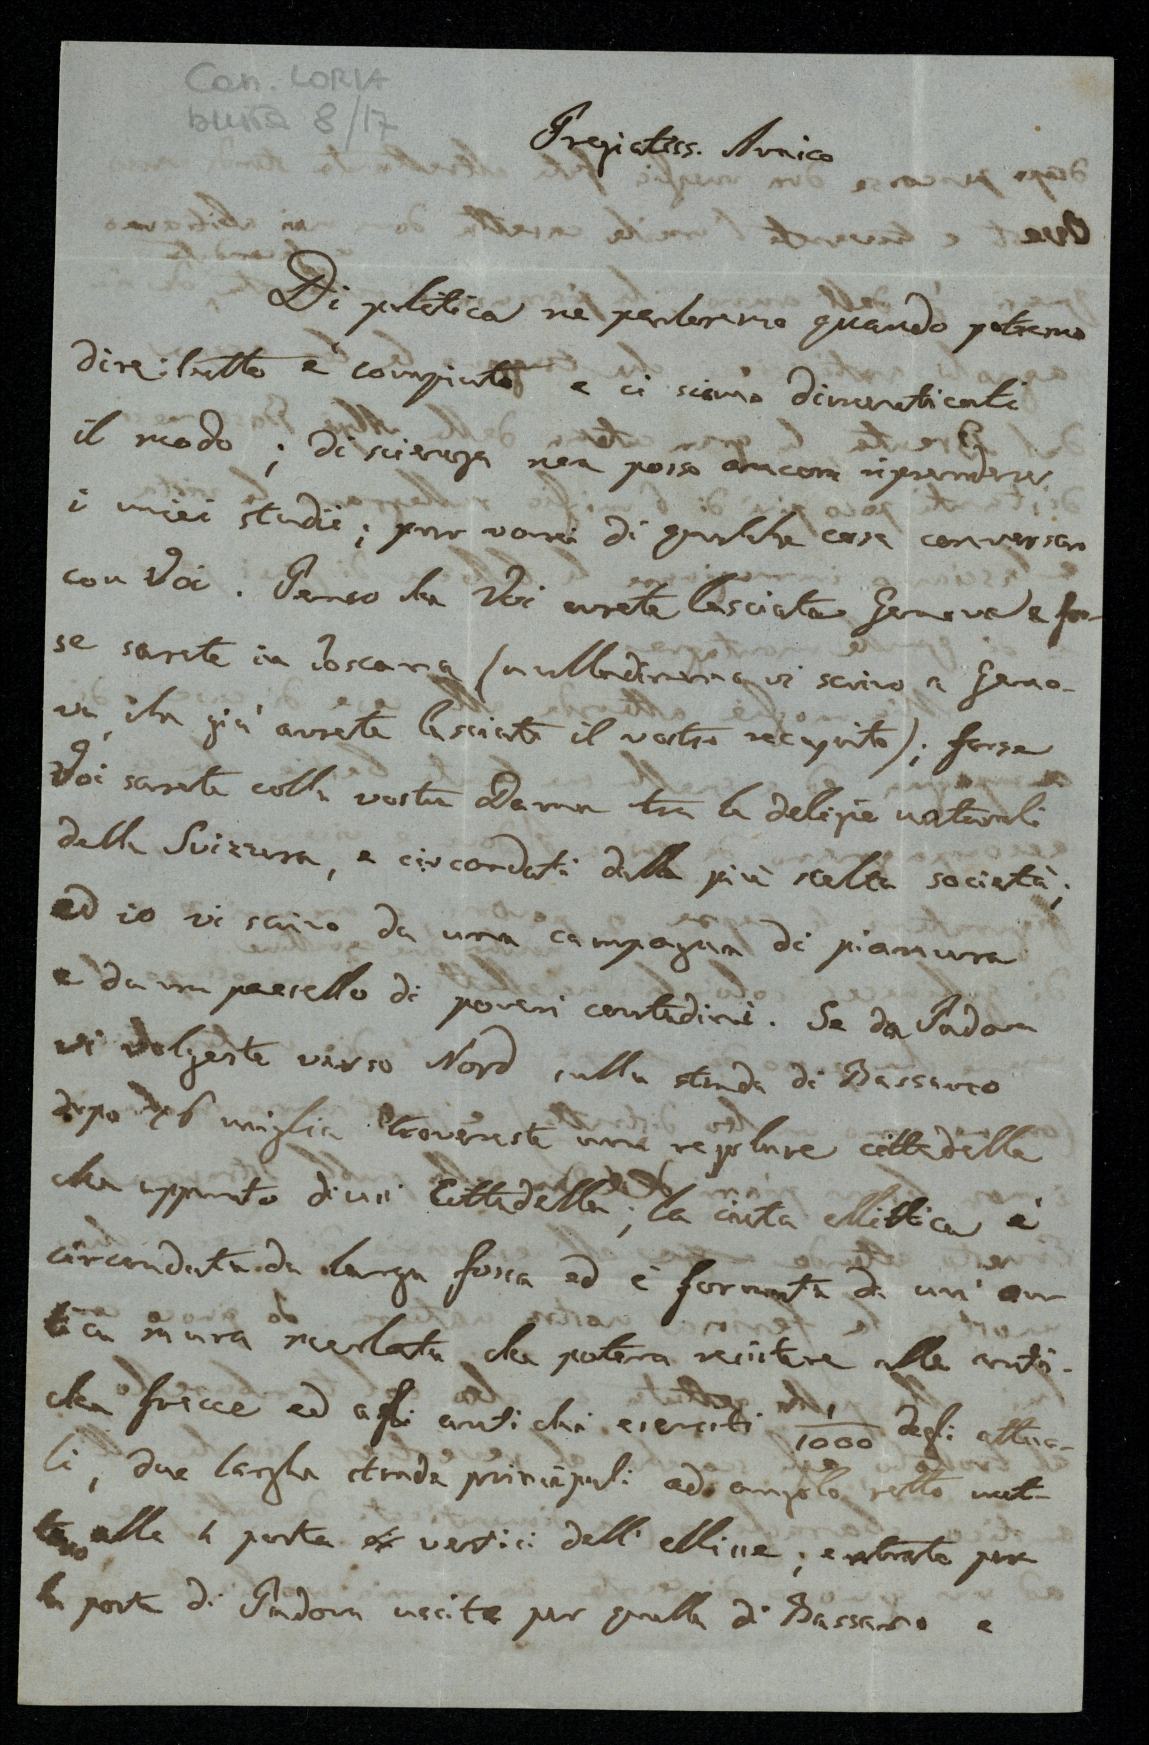 Can. LORIA
busta 8/17
Pregiatiss. Amico
Di politica ne parleremo quando potremo
dire: tutto è compiuto e ci siamo dimenticati
il modo; di scienza non posso ancora riprendere
i miei studii; pur vorrei di qualche cosa conversar
con Voi. Penso che Voi avrete lasciata Genova e for-
se sarete in Toscana (nulladimeno vi scrivo a Geno-
va, che già avrete lasciato il vostro recapito); forse
Voi sarete colla vostra Dama tra le delizie naturali
della Svizzera, e circondati dalla più scelta società;
ed io vi scrivo da una campagna di pianura
e da un paesello di poveri contadini. Se da Padova
vi volgeste verso Nord sulla strada di Bassano
dopo 16 miglia trovereste una regolare cittadella
che appunto dicesi Cittadella; la cinta ellittica è
circondata da larga fossa ed è formata da un' an-
tica mura merlata che poteva resistere alle anti-
che frecce ed agli antichi eserciti 1/1000 degli attua-
li, due larghe strade principali ad angolo retto met-
tono alle 4 porte vertici dell' ellisse; entrate per
la porta di Padova uscite per quella di Bassano e